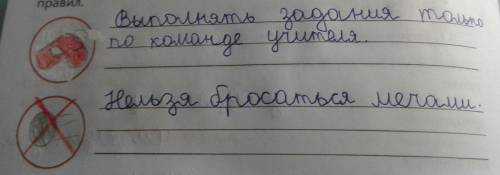 правил.
Выполнять задания только
по команде учителя.
Нельзя бросаться мечами.